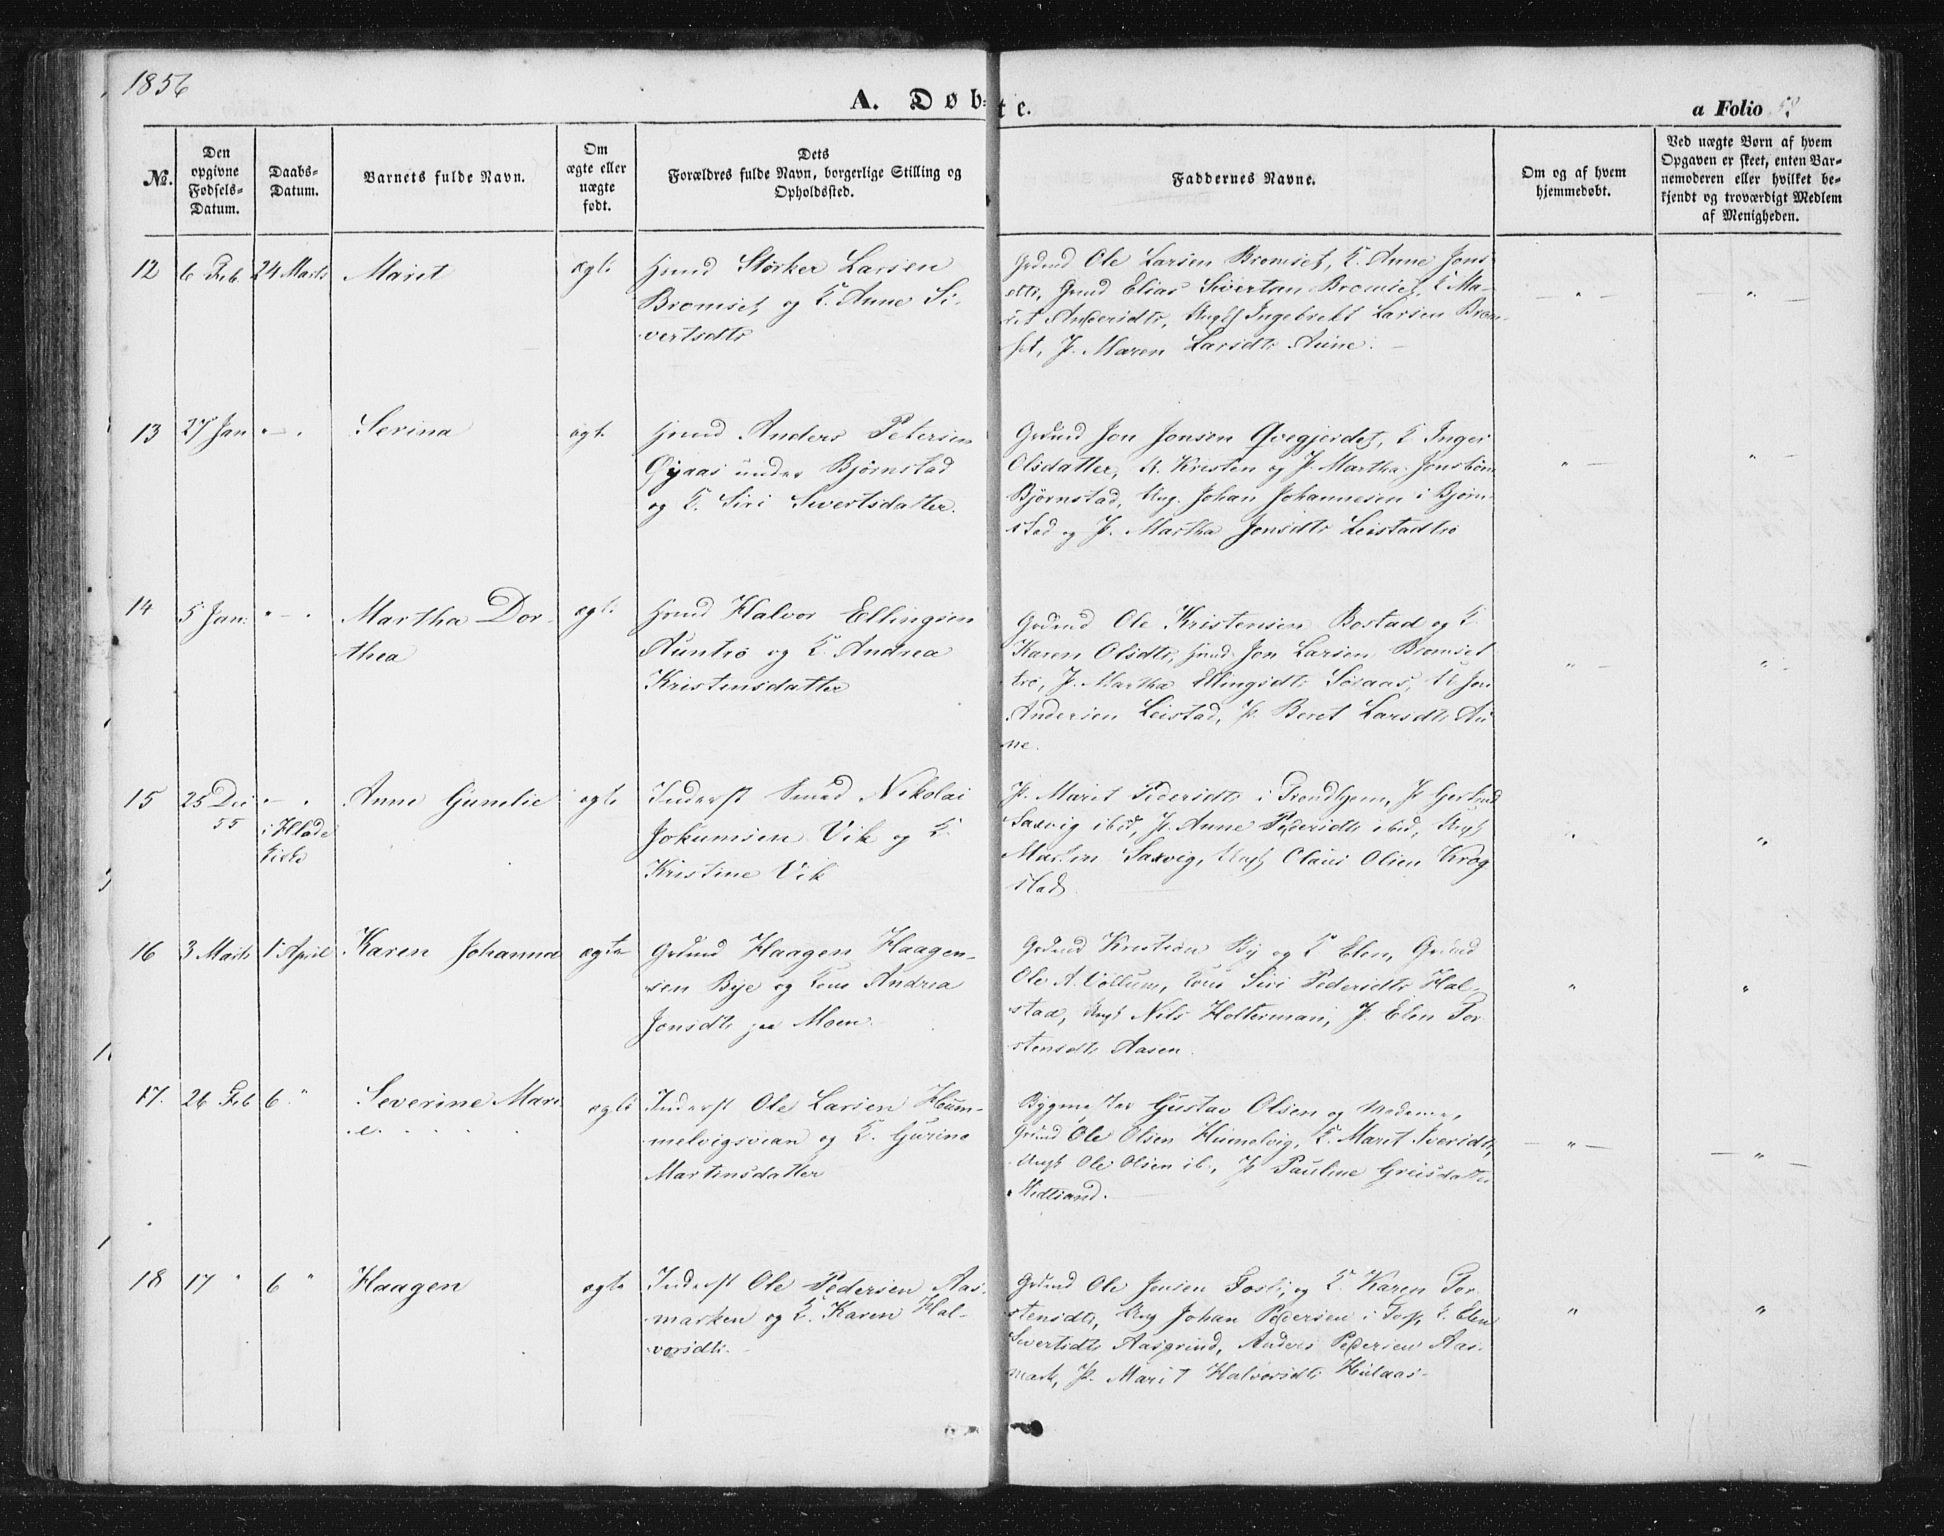 1856
A. Døbte.
a Folio 58
№.
Den opgivne Fødsels-Datum.
Daabs-Datum.
Barnets fulde Navn.
Om ægte eller uægte født.
Dets Forældres fulde Navn, borgerlige Stilling og Opholdssted.
Faddernes Navne.
Om og af hvem hjemmedøbt.
Ved uægte Børn af hvem Opgaven er skeet, enten Barnemoderen eller hvilket bekjendt og troværdigt Medlem af Menigheden.
12 6 Feb. 24 Marts Maret ægte
Hmd Størker Larsen
Bromset og K. Anne Si-
vertsdtr
Grdmd Ole Larsen Bromset, K. Anne Jons-
dtr, Grmd Elias Sivertsen Bromset, K Ma-
rit Andersdtr, Ungk Ingebrekt Larsen Brom-
set, P. Maren Larsdtr Aune.
13 27 Jan. " — " Serina ægte
Hmd Anders Petersen
Gjaas under Bjørnstad
og K. Siri Sivertsdatter.
Grdmd Jon Jonsen Qvegjerdet, K Inger
Olsdatter, Kristen og P. Martha Jonsbørn
Bjørnstad, Ung. Johan Johannesen i Bjørn-
stad og P. Martha Jonsdtr Leistadtrø
14 5 Jan. " — " Martha Dor-
thea
ægte
Hmd Halvor Ellingsen
Auntrø og K. Andrea
Kristensdatter
Grdmd Ole Kristensen Bostad og K
Karen Olsdtr, Hmd Jon Larsen Bromset
trø, P. Martha Ellingsdtr Soraas, U Jon
Andersen Leistad, P. Beret Larsdtr Au-
ne.
15 25 Dec
55
" — "
i Hlade
Kirke
Anne Gunelie ægte
Inderst Smed Nikolai
Jokumsen Vik og K.
Kristine Vik
P. Marit Pedersdtr i Trondhjem, P. Gertrud
Saxvig ibid, P. Anne Pedersdtr ibid, Ungk
Martin Saxvig, Ungk Claus Olsen Krog-
stad.
16 3 Marts 1 April Karen Johanna ægte
Grdmd Haagen Haagen-
sen Bye og Kone Andrea
Jonsdtr paa Moen.
Grdmd Kristian By og K Elen, Grdmd
Ole A. Vollum, Kone Siri Pedersdtr Hal-
stad, Ungk Nils Holterman, P. Elen Tor-
stensdtr Aasen.
17. 26 Feb 6 " Severine Mari-
e
ægte
Inderst Ole Larsen Hum-
melvigsvian og K. Gurine
Martinsdatter
Bygmester Gustav Olsen og Madame,
Grdmd Ole Olsen Humelvig, K. Marit Iversdtr,
Ungk Ole Olsen ib., P. Pauline Greisdatter
Midtsand.
18 17 " 6 " Haagen ægte
Inderst Ole Pedersen Aas-
marken og K. Karen Hal-
vorsdtr.
Grdmd Ole Jensen Fosli, og K Karen Tor-
stensdtr, Ung Johan Pedersen i Torp, K. Elen
Sivertsdtr Aasgrind, Anders Pedersen Aas-
mark, P. Marit Halvorsdtr Hulaas.